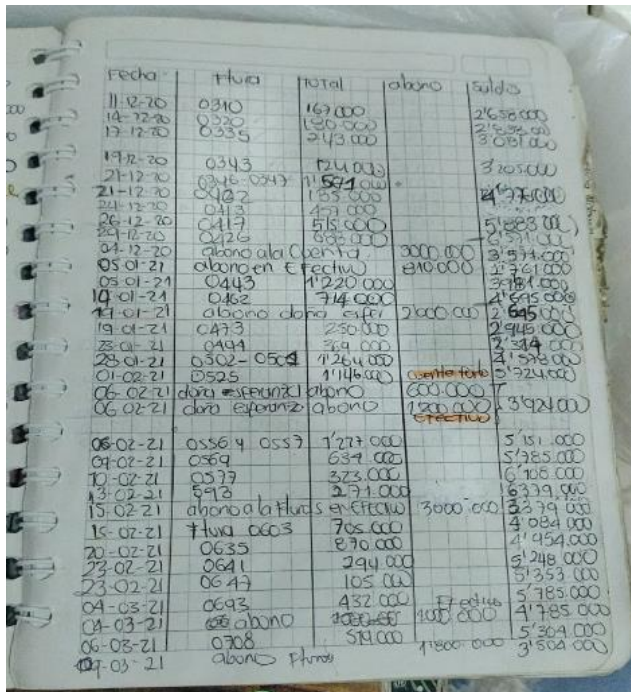 Fecha Ftura Total abono Saldo
11-12-20 0310 167.000 2'658.000
14-12-20 0320 180.000 2'838.000
17-12-20 0335 243.000 3'081.000
19-12-20 0343 124.000 3'205.000
21-12-20 0346-0347 1'571.000 4'776.000
21-12-20 0402 155.000
24-12-20 0413 457.000
26-12-20 0417 515.000
29-12-20 0426 6'571.000
04-12-20 abono ala Cuenta 3000.000 3'571.000
05-01-21 abono en Efectivo 810.000 2'761.000
05-01-21 0443 1'220.000 3'981.000
14-01-21 0462 714.000 4'695.000
19-01-21 abono doña esper 2'000.000 2'695.000
19-01-21 0473 250.000 2'945.000
23-01-21 0494 369.000 3'314.000
28-01-21 0502-0504 1'264.000 4'578.000
01-02-21 0525 1'146.000 5'724.000
06-02-21 doña esperanza abono 600.000
06-02-21 doña esperanza abono 1'200.000 3'924.000
Efectivo
06-02-21 0556 y 0557 1'227.000 5'151.000
09-02-21 0569 634.000 5'785.000
10-02-21 0577 323.000 6'108.000
13-02-21 593 271.000 6'379.000
15-02-21 abono a la Fturas en Efectivo 3000.000 3'379.000
15-02-21 Ftura 0603 705.000 4'084.000
20-02-21 0635 870.000 4'954.000
23-02-21 0641 294.000 5'248.000
23-02-21 0647 105.000 5'353.000
04-03-21 0693 432.000 Efectivo 5'785.000
04-03-21 abono 1000.000 4'785.000
06-03-21 0708 519.000 5'304.000
09-03-21 abono Fturas 1'800.000 3'504.000